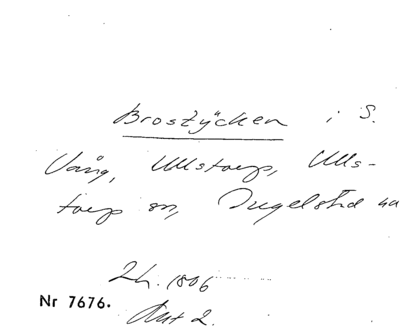 Brostÿcken i S.
Vång, Ullstorp, Ulls-
torp sn, Ingelstad
Lh. 1806
Nr 7676.
Akt 2.